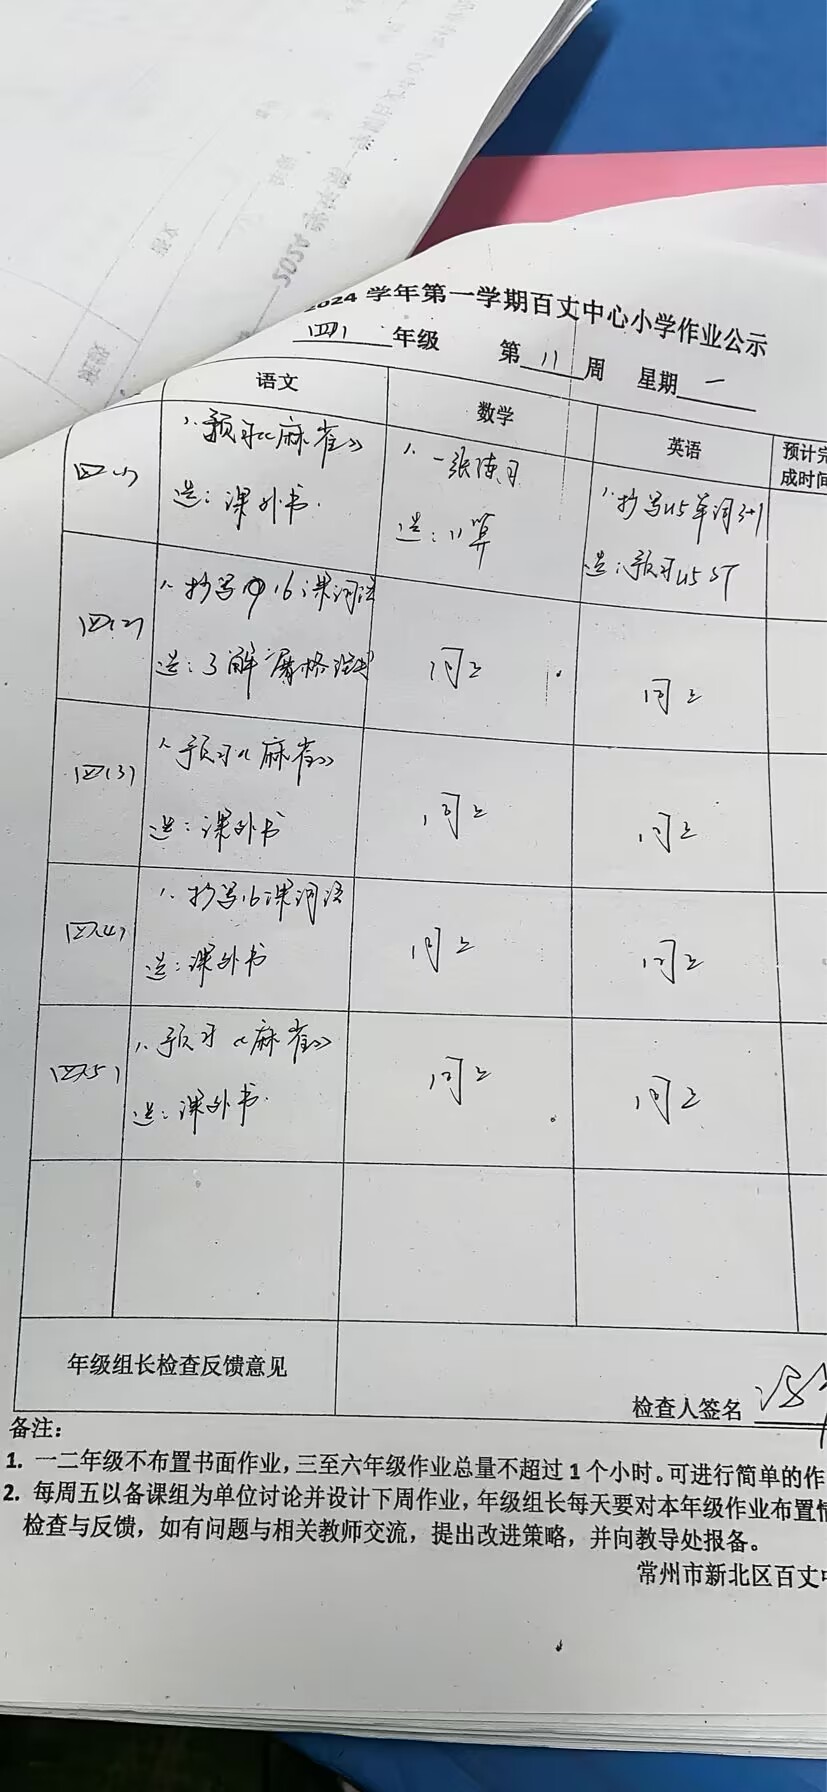 2024 学年第一学期百丈中心小学作业公示
四 年级 第 11 周 星期 一
语文 数学 英语 预计完成时间
四(1) 1. 预习《麻雀》 1. 一张练习 1. 抄写U5单词3+1
选: 课外书. 选: 计算 选: 预习U5 ST
四(2) 1. 抄写 16课词语 同上 同上
选: 了解屠格涅夫
四(3) 1. 预习《麻雀》 同上 同上
选: 课外书
四(4) 1. 抄写16课词语 同上 同上
选: 课外书
四(5) 1. 预习《麻雀》 同上 同上
选: 课外书.
年级组长检查反馈意见
检查人签名
备注:
1. 一二年级不布置书面作业, 三至六年级作业总量不超过 1 个小时。可进行简单的作
2. 每周五以备课组为单位讨论并设计下周作业, 年级组长每天要对本年级作业布置情
检查与反馈, 如有问题与相关教师交流, 提出改进策略, 并向教导处报备。
常州市新北区百丈中